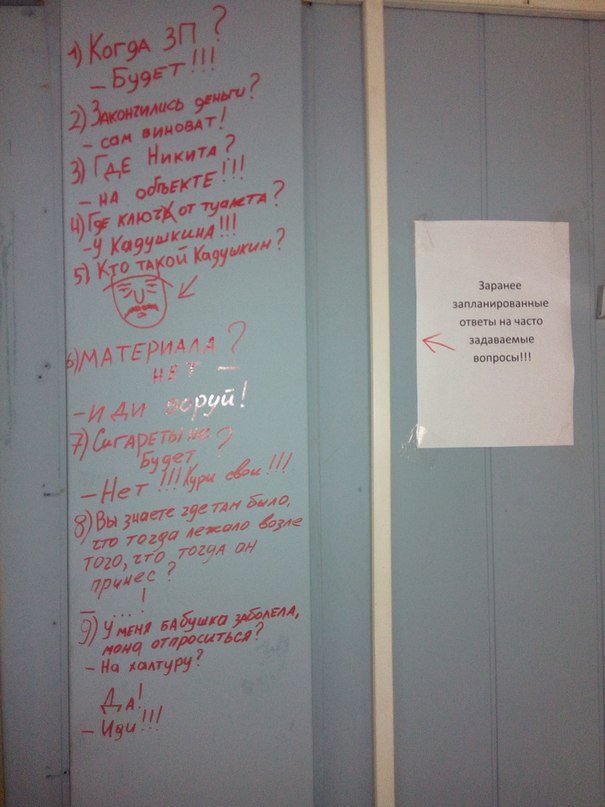 1) Когда ЗП?
- Будет!!!
2) Закончились деньги?
- сам виноват!
3) Где Никита?
- на объекте!!!
4) Где ключ от туалета?
- У Кадушкина!!!
5) Кто такой Кадушкин?
6) МАТЕРИАЛА
НЕТ - ?
- ИДИ воруй!
7) Сигареты не
Будет?
- Нет!!! Кури свои!!!
8) Вы знаете где там было,
что тогда лежало возле
того, что тогда он
принес?
- ... !
9) У меня бабушка заболела,
мона отпроситься?
- На халтуру?
Да!
- Иди!!!
Заранее
запланированные
ответы на часто
задаваемые
вопросы!!!